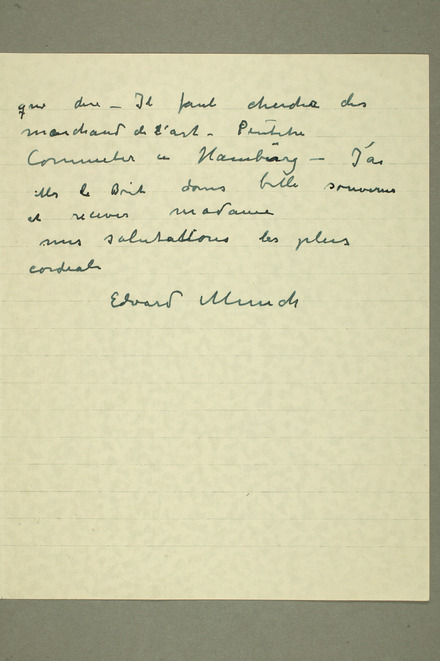 que dire – Il faut cherche des
marchand de l'art – Peutetre
Commeter in Hamburg – J'ai
le Doit dans belle souvenirs
et recever madame
mes salutations les plus
cordials
Edvard Munch